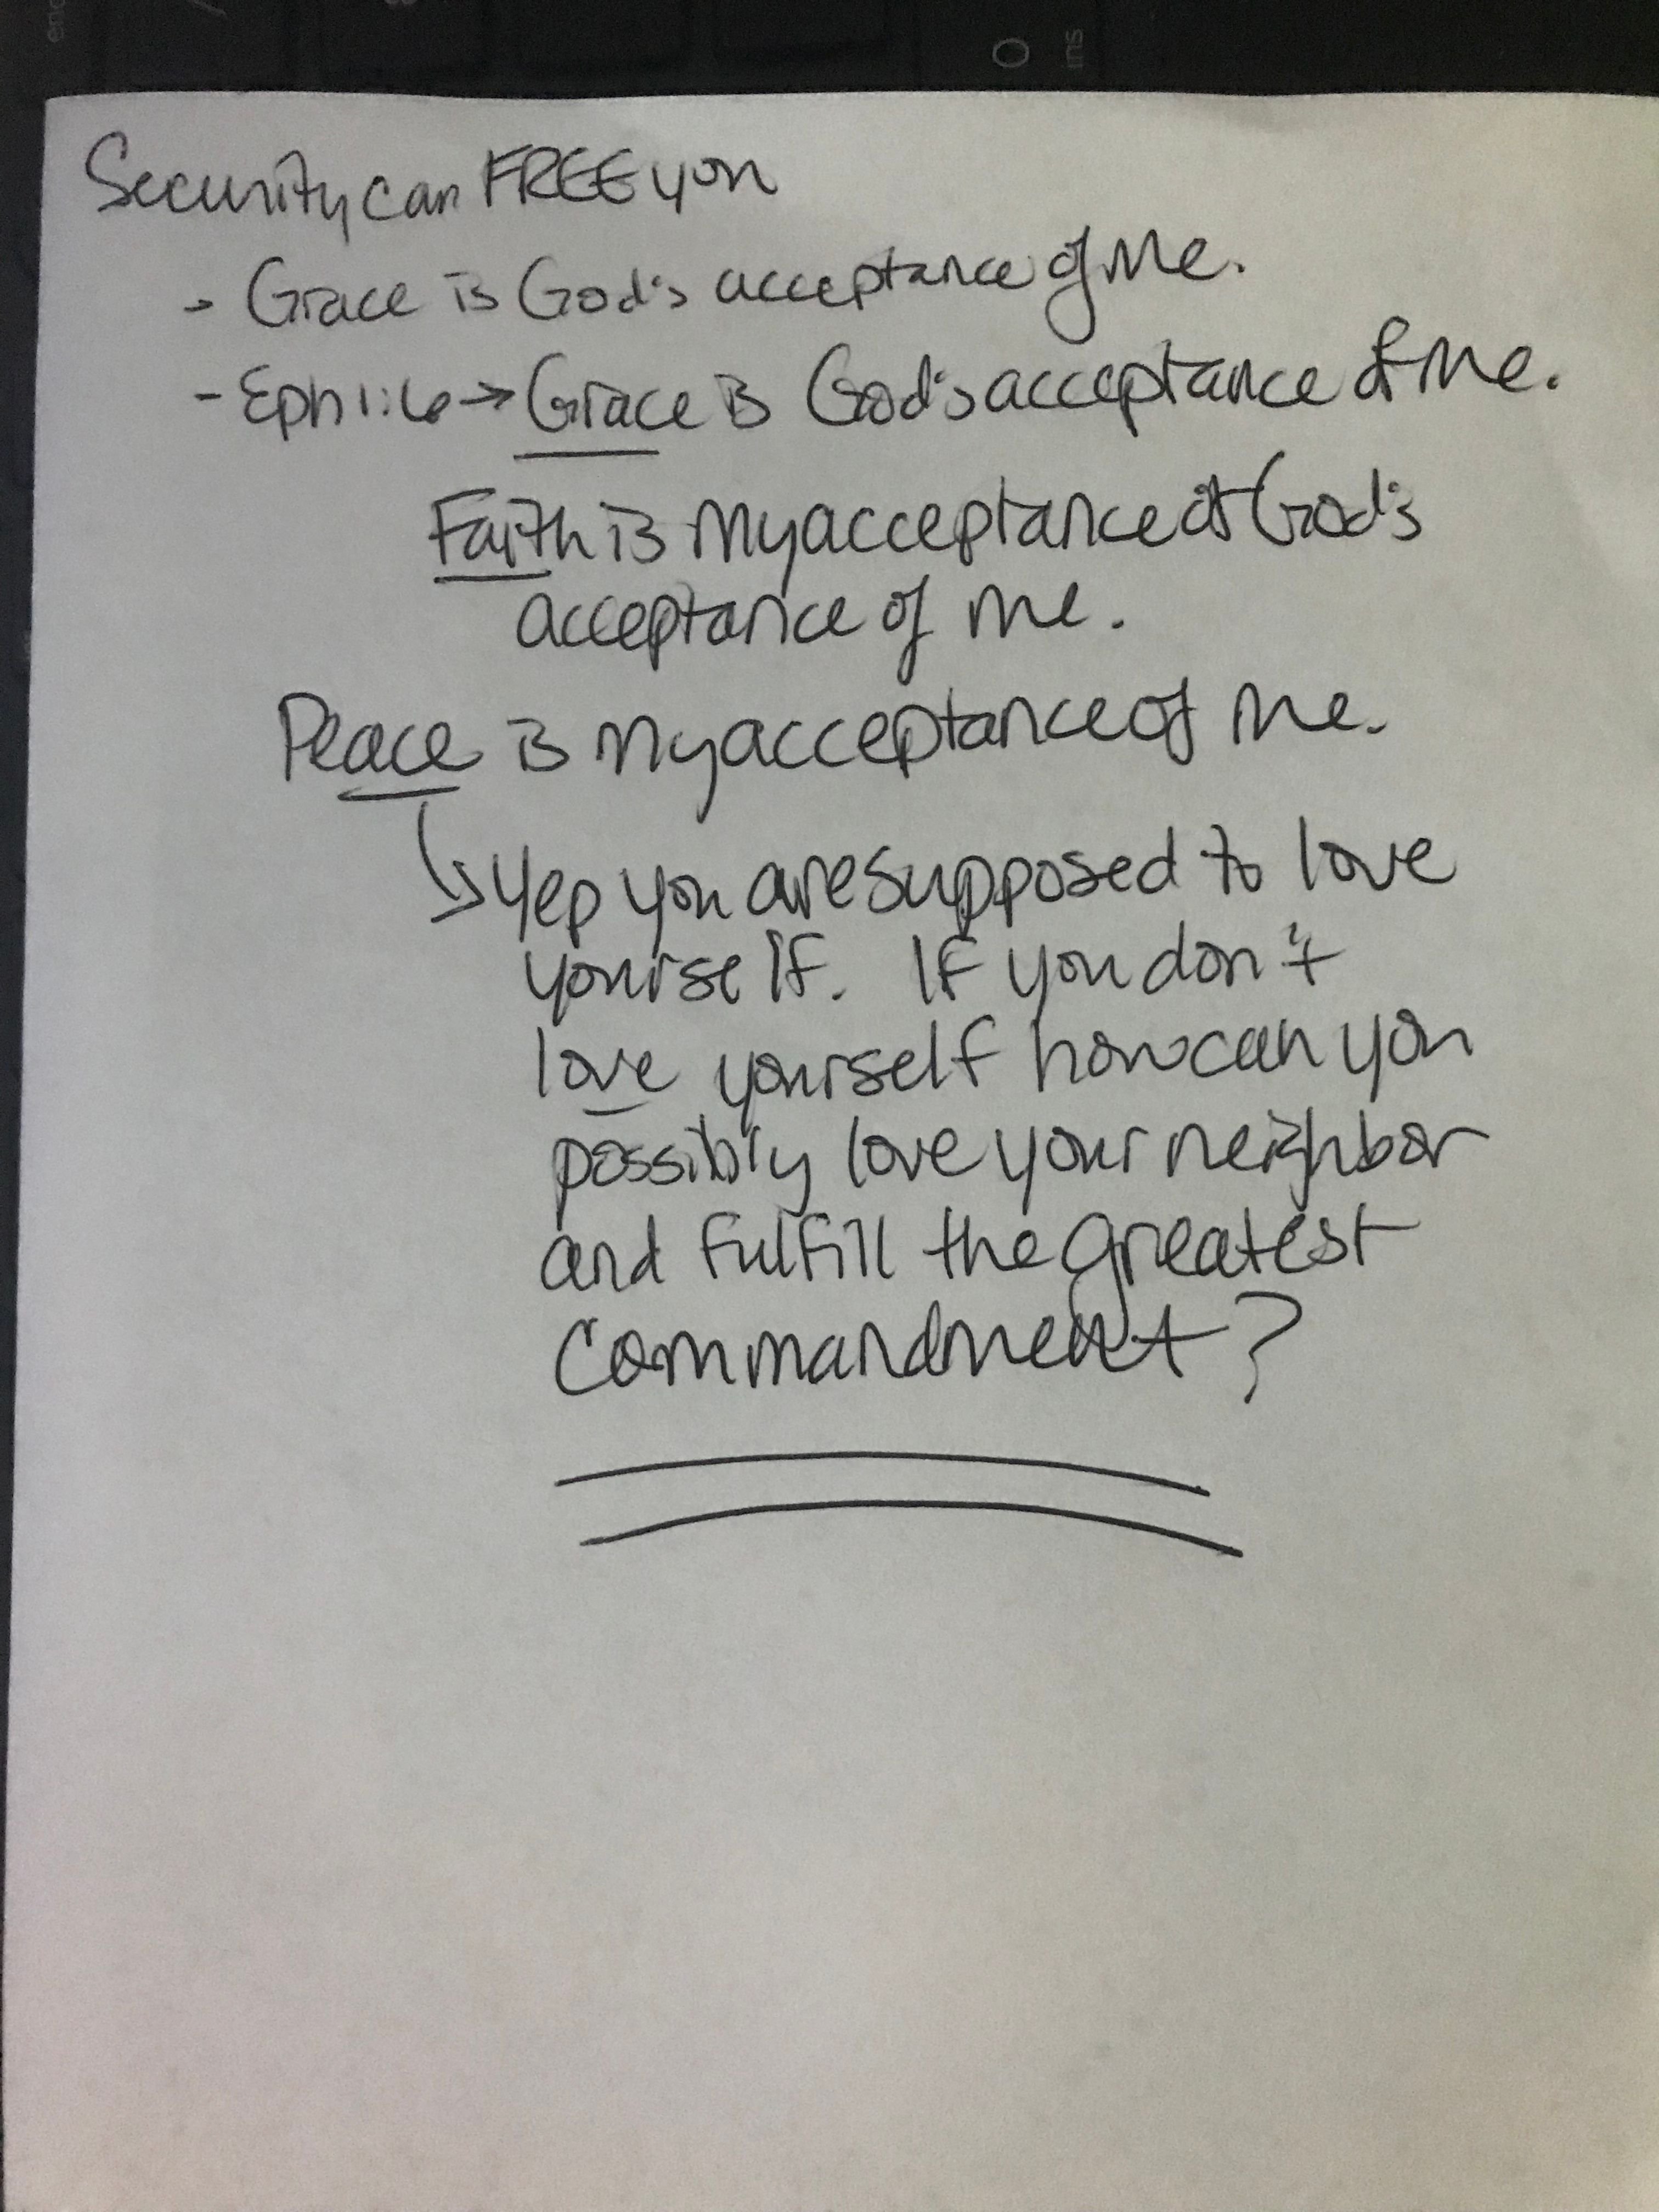 O
ins
Security can FREE you
- Grace is God's acceptance of Me.
- Eph 1:6 → Grace is God's acceptance of Me.
Faith is My acceptance of God's
acceptance of me.
Peace is My acceptance of Me.
↳ Yep you are supposed to love
yourself. If you don't
love yourself how can you
possibly love your neighbor
and fulfill the greatest
Commandment?